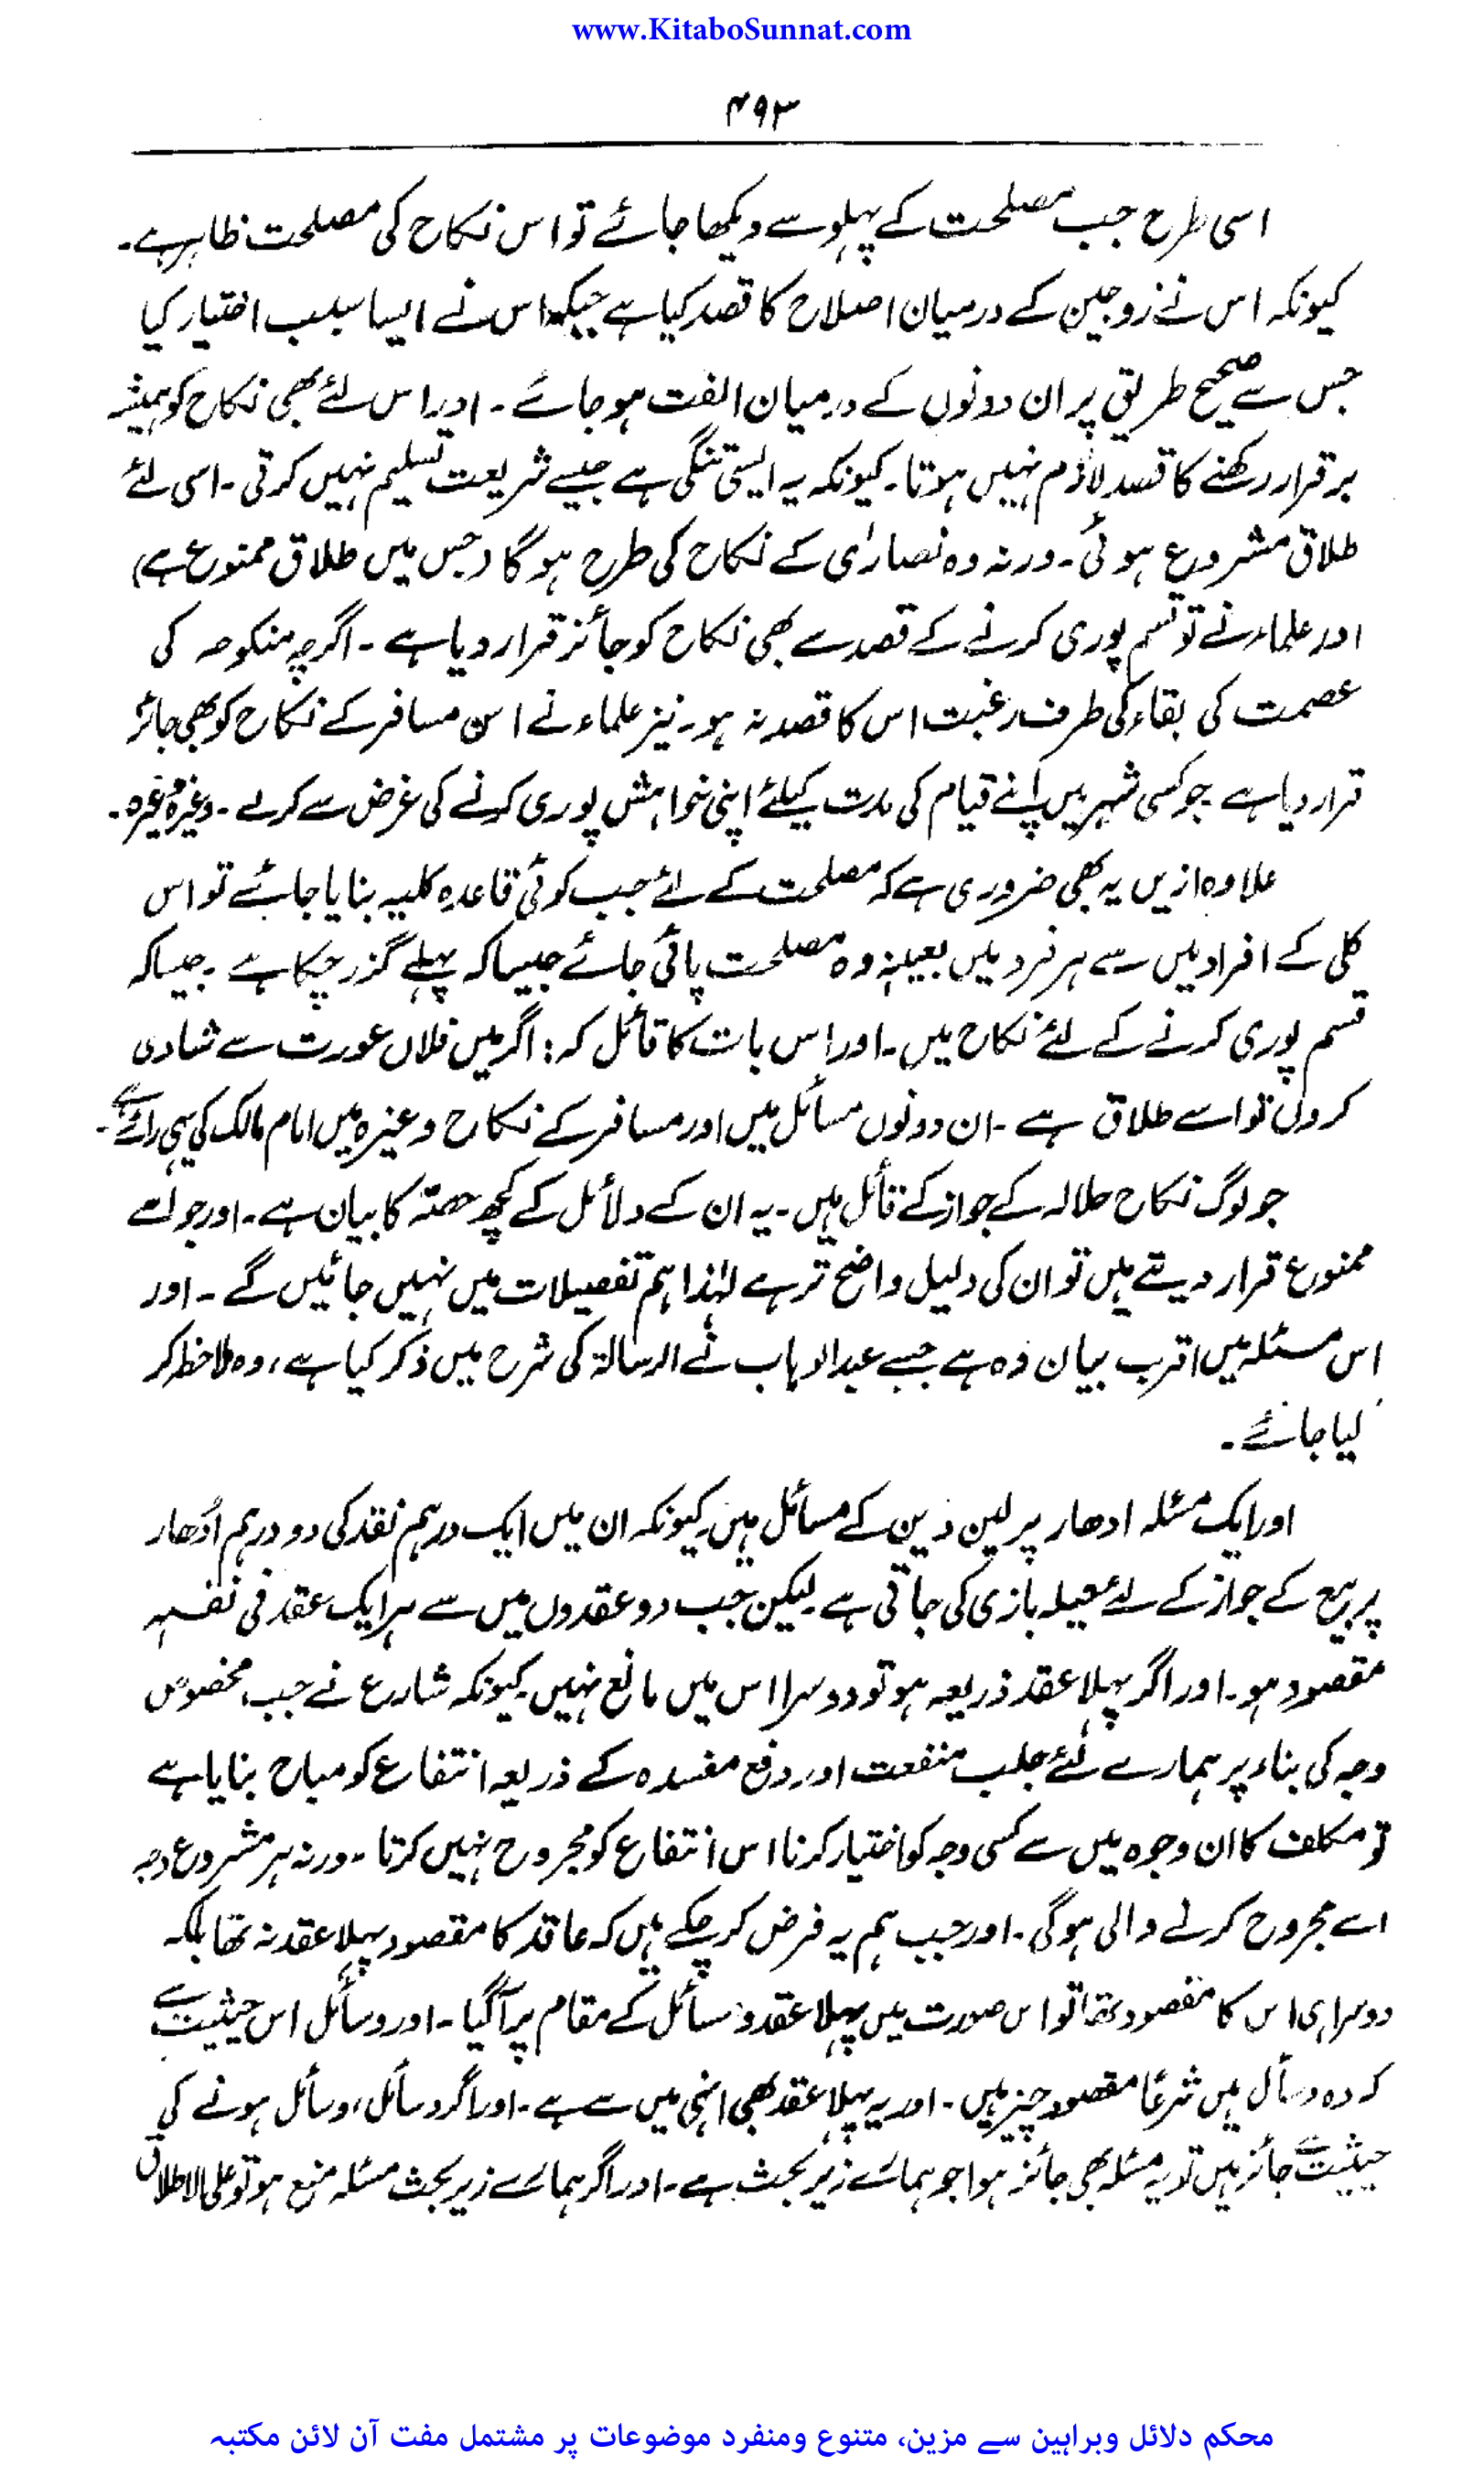 www.KitaboSunnat.com
۴۹۳
اسی طرح جب مصلحت کے پہلو سے دیکھا جائے تو اس نکاح کی مصلحت ظاہر ہے۔
کیونکہ اس نے زوجین کے درمیان اصلاح کا قصد کیا ہے جبکہ اس نے ایسا سبب اختیار کیا
جس سے صحیح طریق پر ان دونوں کے درمیان الفت ہو جائے۔ اور اس لئے بھی نکاح کو ہمیشہ
برقرار رکھنے کا قصد لازم نہیں ہوتا۔ کیونکہ یہ ایسی تنگی ہے جسے شریعت تسلیم نہیں کرتی۔ اسی لئے
طلاق مشروع ہوئی۔ ورنہ وہ نصارٰی کے نکاح کی طرح ہو گا (جس میں طلاق ممنوع ہے)
اور علماء نے تو قسم پوری کرنے کے قصد سے بھی نکاح کو جائز قرار دیا ہے۔ اگرچہ منکوحہ کی
عصمت کی بقاء کی طرف رغبت اس کا قصد نہ ہو۔ نیز علماء نے اس مسافر کے نکاح کو بھی جائز
قرار دیا ہے جو کسی شہر میں اپنے قیام کی مدت کیلئے اپنی خواہش پوری کرنے کی غرض سے کرے۔ وغیرہ وغیرہ۔
علاوہ ازیں یہ بھی ضروری ہے کہ مصلحت کے لئے جب کوئی قاعدہ کلیہ بنایا جائے تو اس
کلی کے افراد میں سے ہر فرد میں بعینہٖ وہ مصلحت پائی جائے جیسا کہ پہلے گزر چکا ہے۔ جیسا کہ
قسم پوری کرنے کے لئے نکاح میں۔ اور اس بات کا قائل کہ: اگر میں فلاں عورت سے شادی
کروں تو اسے طلاق ہے۔ ان دونوں مسائل میں اور مسافر کے نکاح وغیرہ میں امام مالک کی یہی رائے ہے۔
جو لوگ نکاح حلالہ کے جواز کے قائل ہیں۔ یہ ان کے دلائل کے کچھ حصّہ کا بیان ہے۔ اور جو اسے
ممنوع قرار دیتے ہیں تو ان کی دلیل واضح تر ہے لہٰذا ہم تفصیلات میں نہیں جائیں گے۔ اور
اس مسئلہ میں اقرب بیان وہ ہے جسے عبدالوہاب نے الرسالۃ کی شرح میں ذکر کیا ہے، وہ ملاحظہ کر
لیا جائے۔
اور ایک مسئلہ ادھار پر لین دین کے مسائل ہیں۔ کیونکہ ان میں ایک درہم نقد کی دو درہم اُدھار
پر بیع کے جواز کے لئے حیلہ بازی کی جاتی ہے۔ لیکن جب دو عقدوں میں سے ہر ایک عقد فی نفسہٖ
مقصود ہو۔ اور اگر پہلا عقد ذریعہ ہو تو دوسرا اس میں مانع نہیں۔ کیونکہ شارع نے جب مخصوص
وجہ کی بناء پر ہمارے لئے جلب منفعت اور دفع مفسدہ کے ذریعہ انتفاع کو مباح بنایا ہے
تو مکلف کا ان وجوہ میں سے کسی وجہ کو اختیار کرنا اس انتفاع کو مجروح نہیں کرتا۔ ورنہ ہر مشروع وجہ
اسے مجروح کرنے والی ہوگی۔ اور جب ہم یہ فرض کر چکے ہیں کہ عاقد کا مقصود پہلا عقد نہ تھا بلکہ
دوسرا ہی اس کا مقصود تھا تو اس صورت میں پہلا عقد وسائل کے مقام پر آگیا۔ اور وسائل اس حیثیت سے
کہ وہ وسائل ہیں شرعاً مقصود چیز ہیں۔ اور یہ پہلا عقد بھی انہی میں سے ہے۔ اور اگر وسائل، وسائل ہونے کی
حیثیت سے جائز ہیں تو یہ مسئلہ بھی جائز ہوا جو ہمارے زیر بحث ہے۔ اور اگر ہمارے زیر بحث مسئلہ منع ہو تو علی الاطلاق
محکم دلائل وبراہین سے مزین، متنوع ومنفرد موضوعات پر مشتمل مفت آن لائن مکتبہ